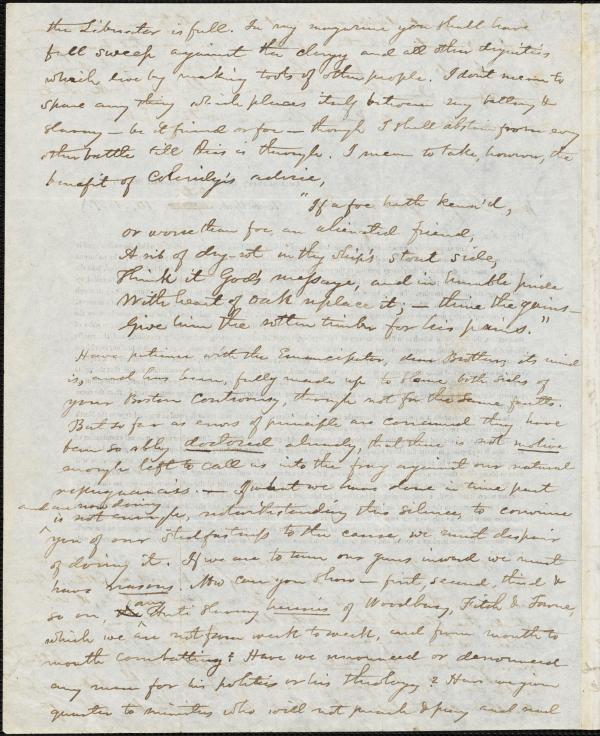 the Liberator is full. In my magazine you shall have
full sweep against the clergy and all other dignities
which live by making tools of other people. I don't mean to
spare any thing which places itself between my battery &
slavery — be it friend or foe — though I shall abstain from every
other battle till this is through. I mean to take, however, the
benefit of Coleridge's advice,
"If a foe hath kenn'd,
or worse than foe, an alienated friend,
A rib of dry-rot in thy ship's stout side,
Think it God's message, and in humble pride
With heart of oak replace it; — thine the gains —
Give him the rotten timber for his pains."
Have patience with the Emancipator, dear Brother, its mind
is, and has been, fully made up to blame both sides of
your Boston Controversy, though not for the same faults.
But so far as errors of principle are concerned they have
been so ably doctored already, that there is not motive
enough left to call us into the fray against our natural
repugnancies. — If what we have done in time past
and are now doing
is not enough, notwithstanding this silence, to convince
you of our steadfastness to the cause, we must despair
of doing it. If we are to turn our guns inward we must
have reasons. Now can you show — first, second, third &
so on, any Anti Slavery heresies of Woodbury, Fitch & Towne,
which we are not from week to week, and from month to
month combatting? Have we announced or denounced
any man for his politics or his theology? Have we given
quarter to ministers who will not preach & pray and